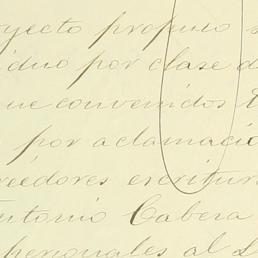 oyecto propuso s
iduo por clase d
que convenidos E
por aclamació
reedores escritura
Antonio Cabera
personales al L